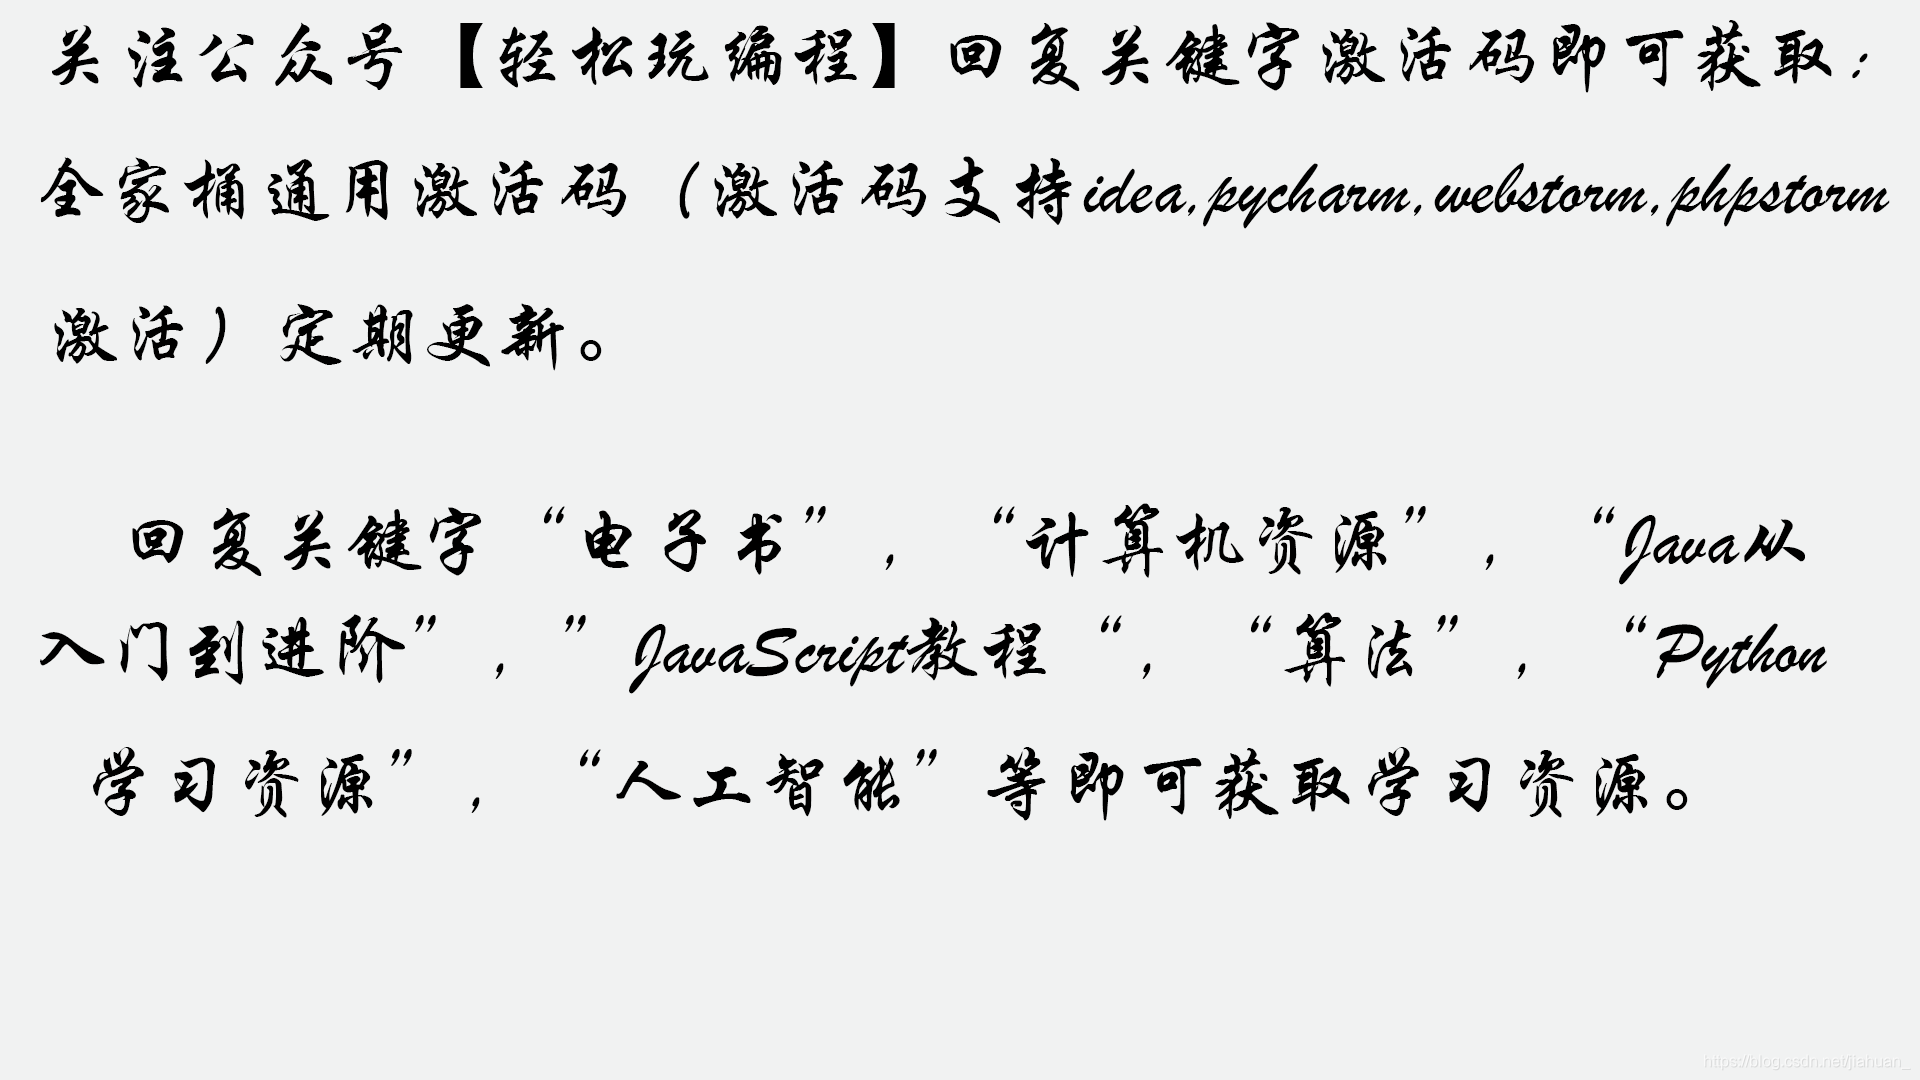 关注公众号【轻松玩编程】回复关键字激活码即可获取：
全家桶通用激活码（激活码支持idea,pycharm,webstorm,phpstorm
激活）定期更新。
回复关键字“电子书”，“计算机资源”，“Java从
入门到进阶”，”JavaScript教程“，“算法”，“Python
学习资源”，“人工智能”等即可获取学习资源。
https://blog.csdn.net/jiahuan_